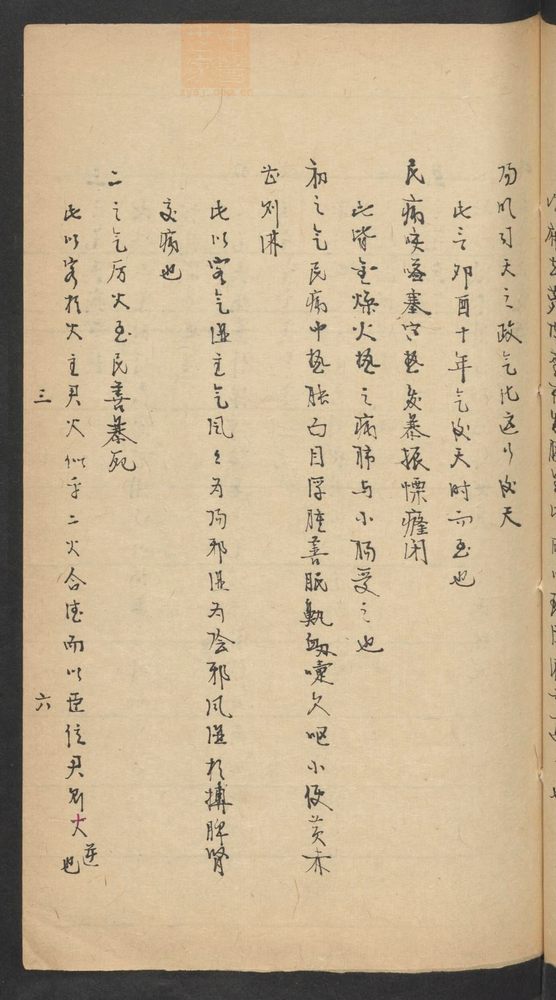 陽明司天之政气化运行后天
此言卯酉十年气后天时而至也
民病咳嗌塞寒热发暴振慄癃闭
此皆金燥火热之病肺与小肠受之也
初之气民病中热胀面目浮肿善眠鼽衄嚏欠呕小便黄赤
甚则淋
此以客气湿主气风风为阳邪湿为阴邪风湿相搏脾肾
交病也
二之气厉大至民善暴死
此以客相火主君火似乎二火合德而以臣位君则大逆
也
三
六